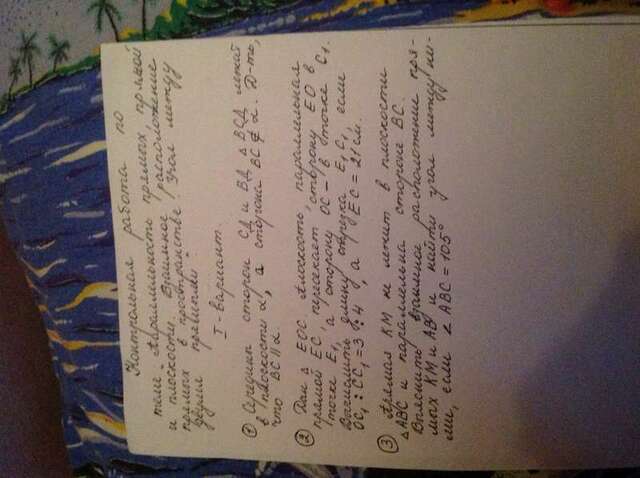 Контрольная работа по
теме „Параллельность прямых, прямой
и плоскости. Взаимное расположение
прямых в пространстве, угол между
двумя прямыми"
I-вариант.
① Середины сторон СД и ВД △ ВСД лежат
в плоскости α, а сторона ВС ⊄ α. Д-ть,
что ВС || α.
② Дан △ ЕОС. Плоскость, параллельная
прямой ЕС, пересекает сторону ЕО в
точке Е₁, а сторону ОС - в точке С₁.
Вычислить длину отрезка Е₁С₁, если
ОС₁ : СС₁ = 3 : 4, а ЕС = 21 см.
③ Прямая КМ не лежит в плоскости
△ АВС и параллельна стороне ВС.
Выяснить взаимное расположение пря-
мых КМ и АВ и найти угол между ни-
ми, если ∠ АВС = 105°